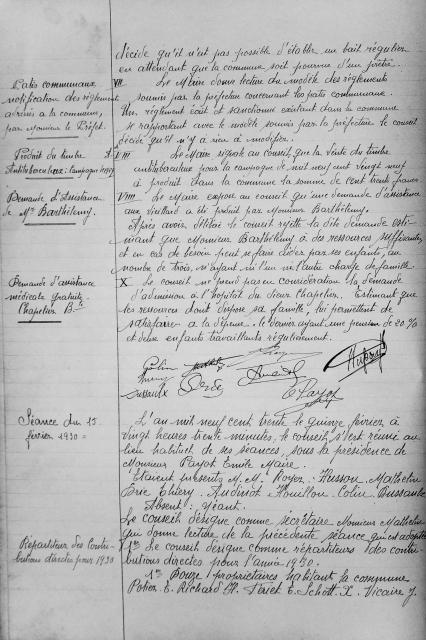 décide qu'il n'est pas possible d'établir un bail régulier
en attendant que la commune soit pourvue d'un prêtre.
Patis communaux
notification des règlements
adressés à la commune,
par Monsieur le Préfet.
VII Le Maire donne lecture du modèle des règlements
soumis par la préfecture concernant les patis communaux.
Un règlement écrit et sanctionné existant dans la commune
se rapportant avec le modèle soumis par la préfecture le conseil
décide qu'il n'y a rien à modifier.
Produit du timbre
Antituberculeux: Campagne
VIII Le Maire expose au conseil que la vente du timbre
antituberculeux pour la campagne de mil neuf cent vingt neuf
a produit dans la commune la somme de cent trente francs
Demande d'Assistance
de Mr Barthélemy.
VIIII Le Maire expose au conseil que une demande d'assistance
aux vieillard a été produit par Monsieur Barthélemy.
Après avoir délibéré le conseil rejette la dite demande esti-
mant que Monsieur Barthélemy a des ressources suffisantes,
et en cas de besoin peut se faire aider par ses enfants, au
nombre de trois, n'ayant ni l'un ni l'autre charge de famille.
Demande d'assistance
médicale gratuite
Chapelier
X Le conseil ne prend pas en considération la demande
d'admission à l'hôpital du sieur Chapelier. Estimant que
les ressources dont dispose sa famille, lui permettent de
satisfaire a la dépense. le dernier ayant une pension de 20 %
et deux enfants travaillants régulièrement.
Colin
Dussaulx
E Payot
Séance du 15
février 1930 =
L'an mil neuf cent trente le quinze février à
vingt heures trente minutes, le conseil s'est réuni au
lieu habituel de ses séances, sous la présidence de
Monsieur Payot Emile Maire.
Etaient présents M. M. Royer. Husson. Mathelin
Brie Thiéry. Audinot. Houillon. Colin Dussaulx
Absent: Néant.
Le conseil désigne comme secrétaire Monsieur Mathelin
qui donne lecture de la précédente séance qui est adoptée
Répartiteur des Contri-
butions directes pour 1930
1° Le conseil désigne comme répartiteurs des contri-
butions directes pour l'année 1930.
1° Douze propriétaires habitant la commune
Potier E. Richard H. E. Schott X. Vicaire J.